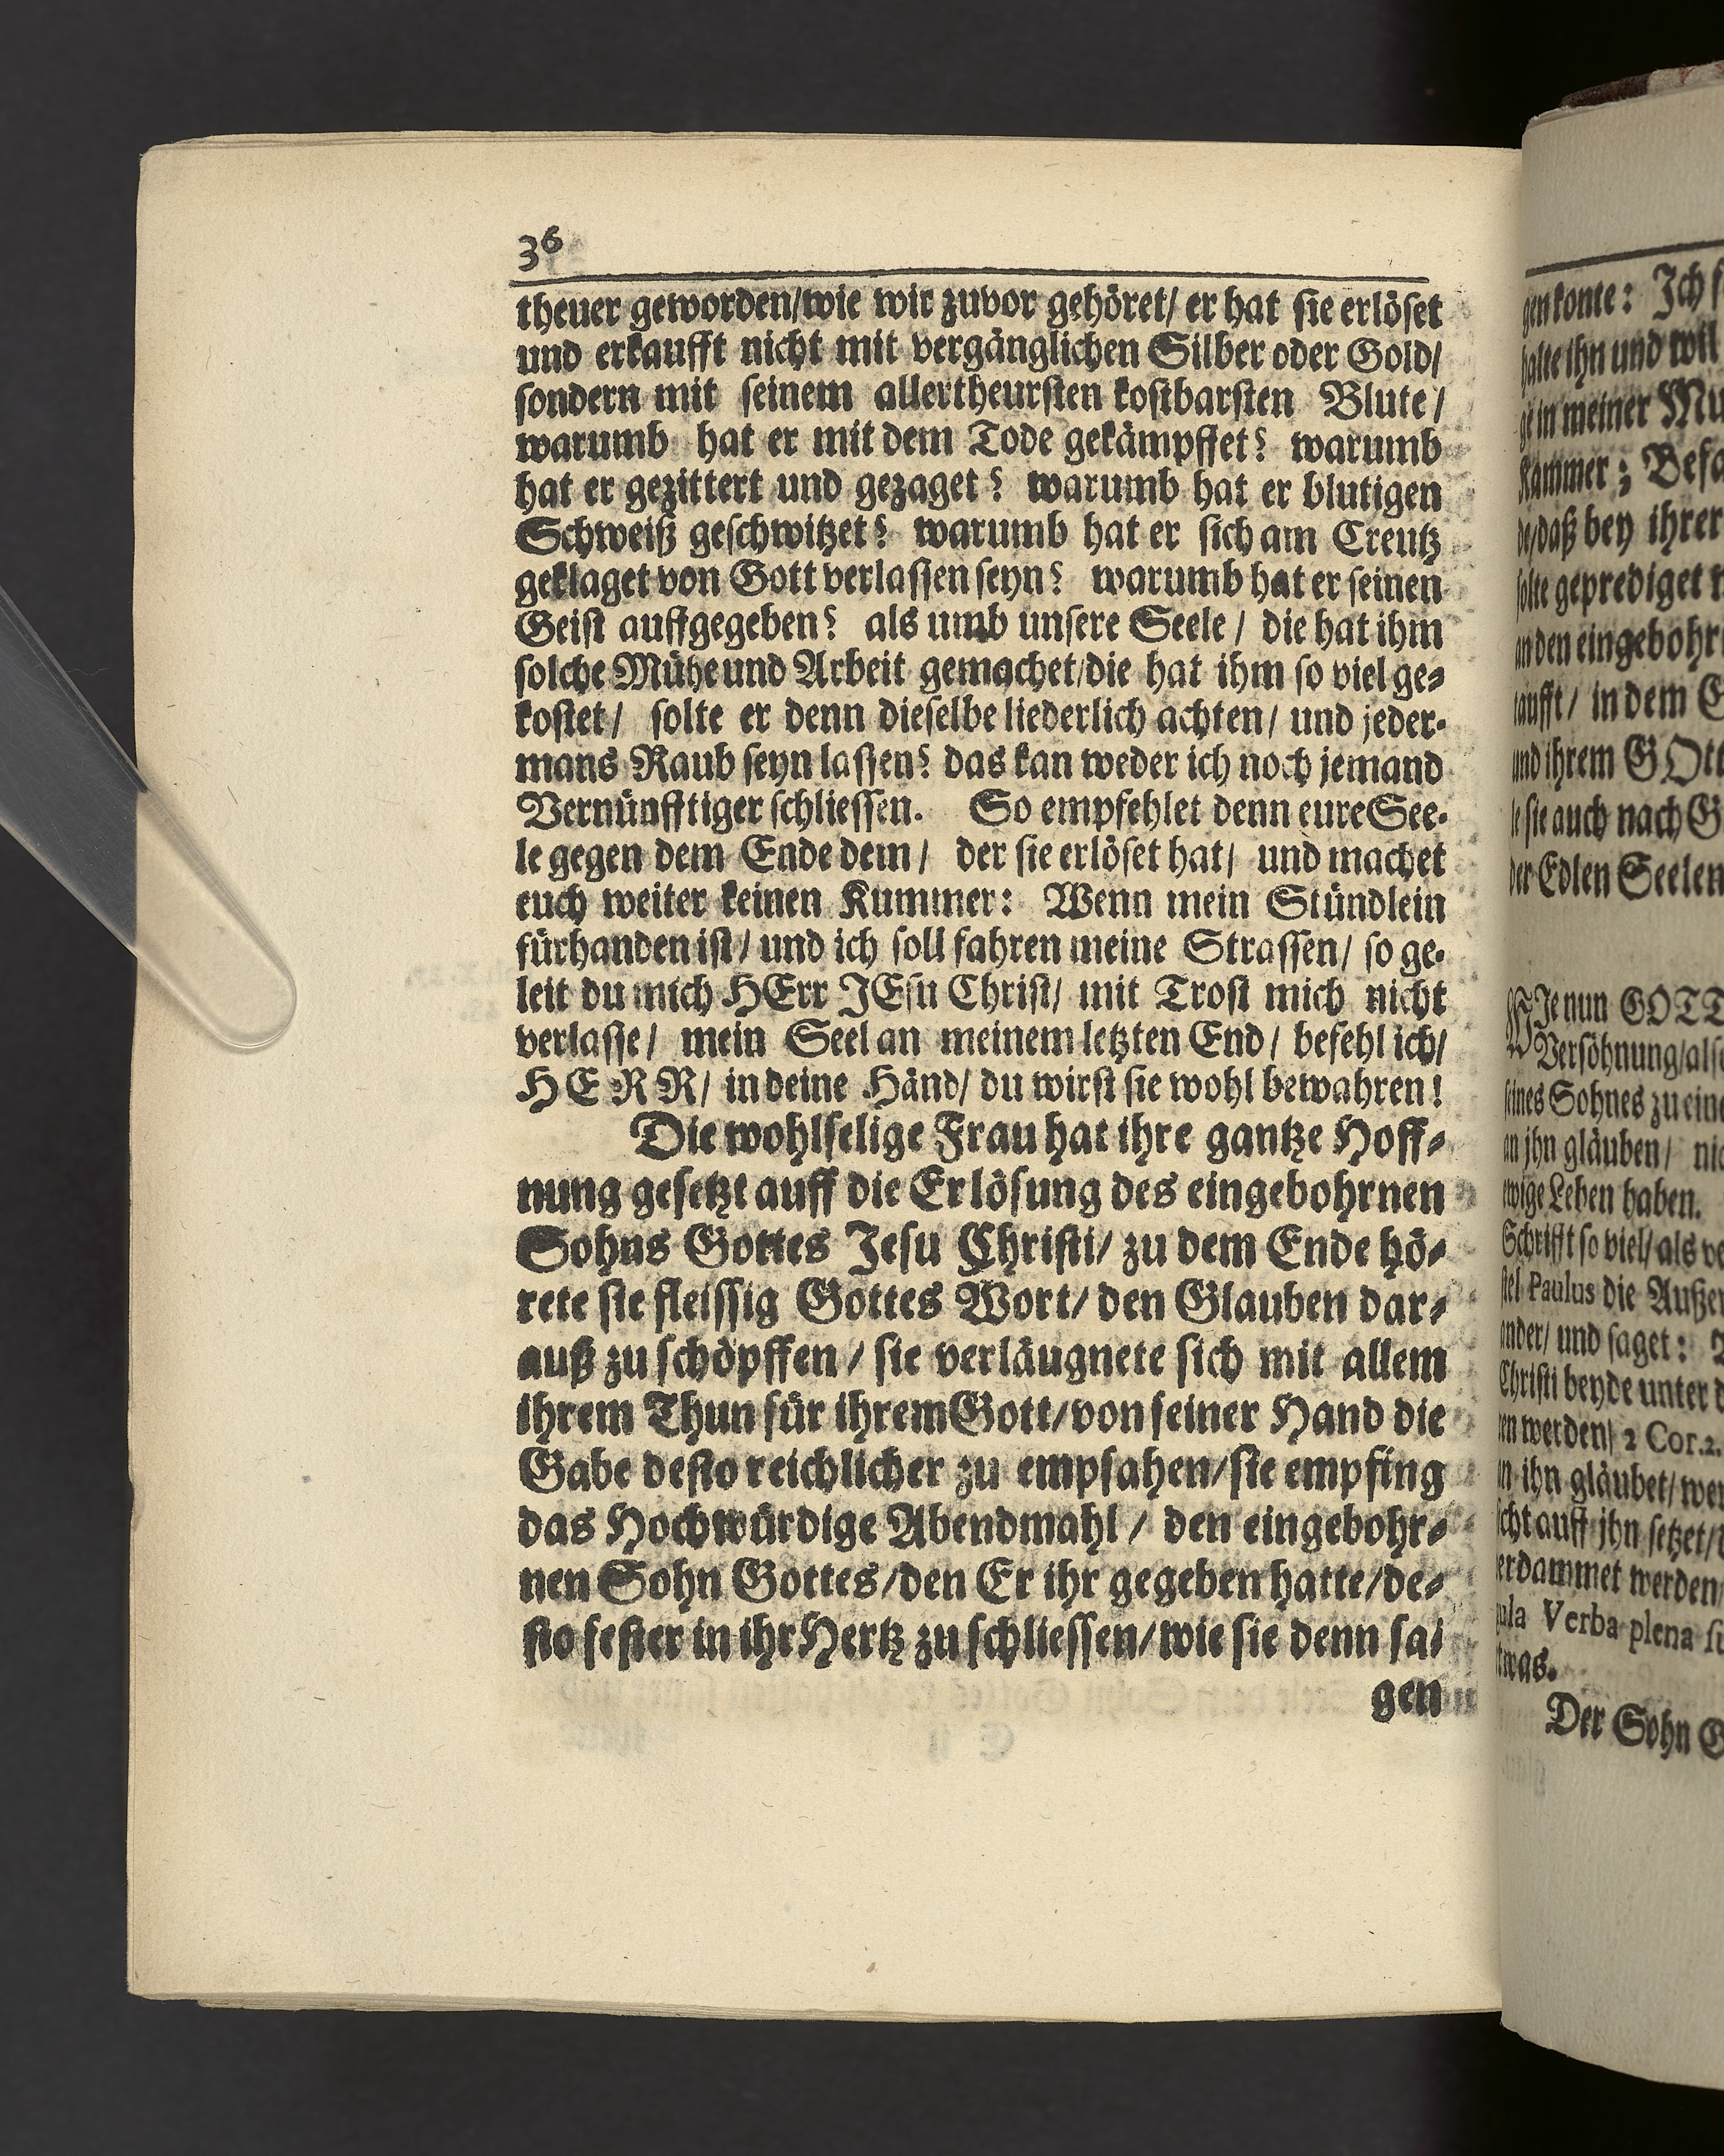 36
theuer geworden/wie wir zuvor gehöret/ er hat sie erlöset
und erkaufft nicht mit vergänglichen Silber oder Gold/
sondern mit seinem allertheursten kostbarsten Blute/
warumb hat er mit dem Tode gekämpffet? warumb
hat er gezittert und gezaget? warumb hat er blutigen
Schweiß geschwitzet? warumb hat er sich am Creutz
geklaget von Gott verlassen seyn? warumb hat er seinen
Geist auffgegeben? als umb unsere Seele / die hat ihm
solche Mühe und Arbeit gemachet/die hat ihm so viel ge-
kostet/ solte er denn dieselbe liederlich achten/ und jeder-
mans Raub seyn lassen? das kan weder ich noch jemand
Vernünfftiger schliessen. So empfehlet denn eure See-
le gegen dem Ende dem/ der sie erlöset hat/ und machet
euch weiter keinen Kummer: Wenn mein Stündlein
fürhanden ist/ und ich soll fahren meine Strassen/ so ge-
leit du mich HErr JEsu Christ/ mit Trost mich nicht
verlasse/ mein Seel an meinem letzten End/ befehl ich/
HERR/ in deine Händ/ du wirst sie wohl bewahren!
Die wohlselige Frau hat ihre gantze Hoff-
nung gesetzt auff die Erlösung des eingebohrnen
Sohns Gottes Jesu Christi/ zu dem Ende hö-
rete sie fleissig Gottes Wort/ den Glauben dar-
auß zu schöpffen / sie verläugnete sich mit allem
ihrem Thun für ihrem Gott/von seiner Hand die
Gabe desto reichlicher zu empfahen/sie empfing
das Hochwürdige Abendmahl / den eingebohr-
nen Sohn Gottes/den Er ihr gegeben hatte/de-
sto fester in ihr Hertz zu schliessen/wie sie denn sa-
gen
gen konte: Ich
halte ihn und wil
in meiner
Kammer;
de/daß bey ihrer
solte geprediget
an den eingebohr
in dem
und ihrem GOtt
sie auch nach
der Edlen Seelen
WJe nun GOTT
Versöhnung/also
seines Sohnes zu eine
an jhn gläuben/ nic
ewige Leben haben.
Schrifft so viel/ als ve
stel Paulus die Außer
ander/ und saget:
Christi beyde unter d
ren werden/ 2 Cor.2.
an ihn gläubet/wer
auff jhn setzet/
verdammet werden/
Verba plena
etwas.
Der Sohn G